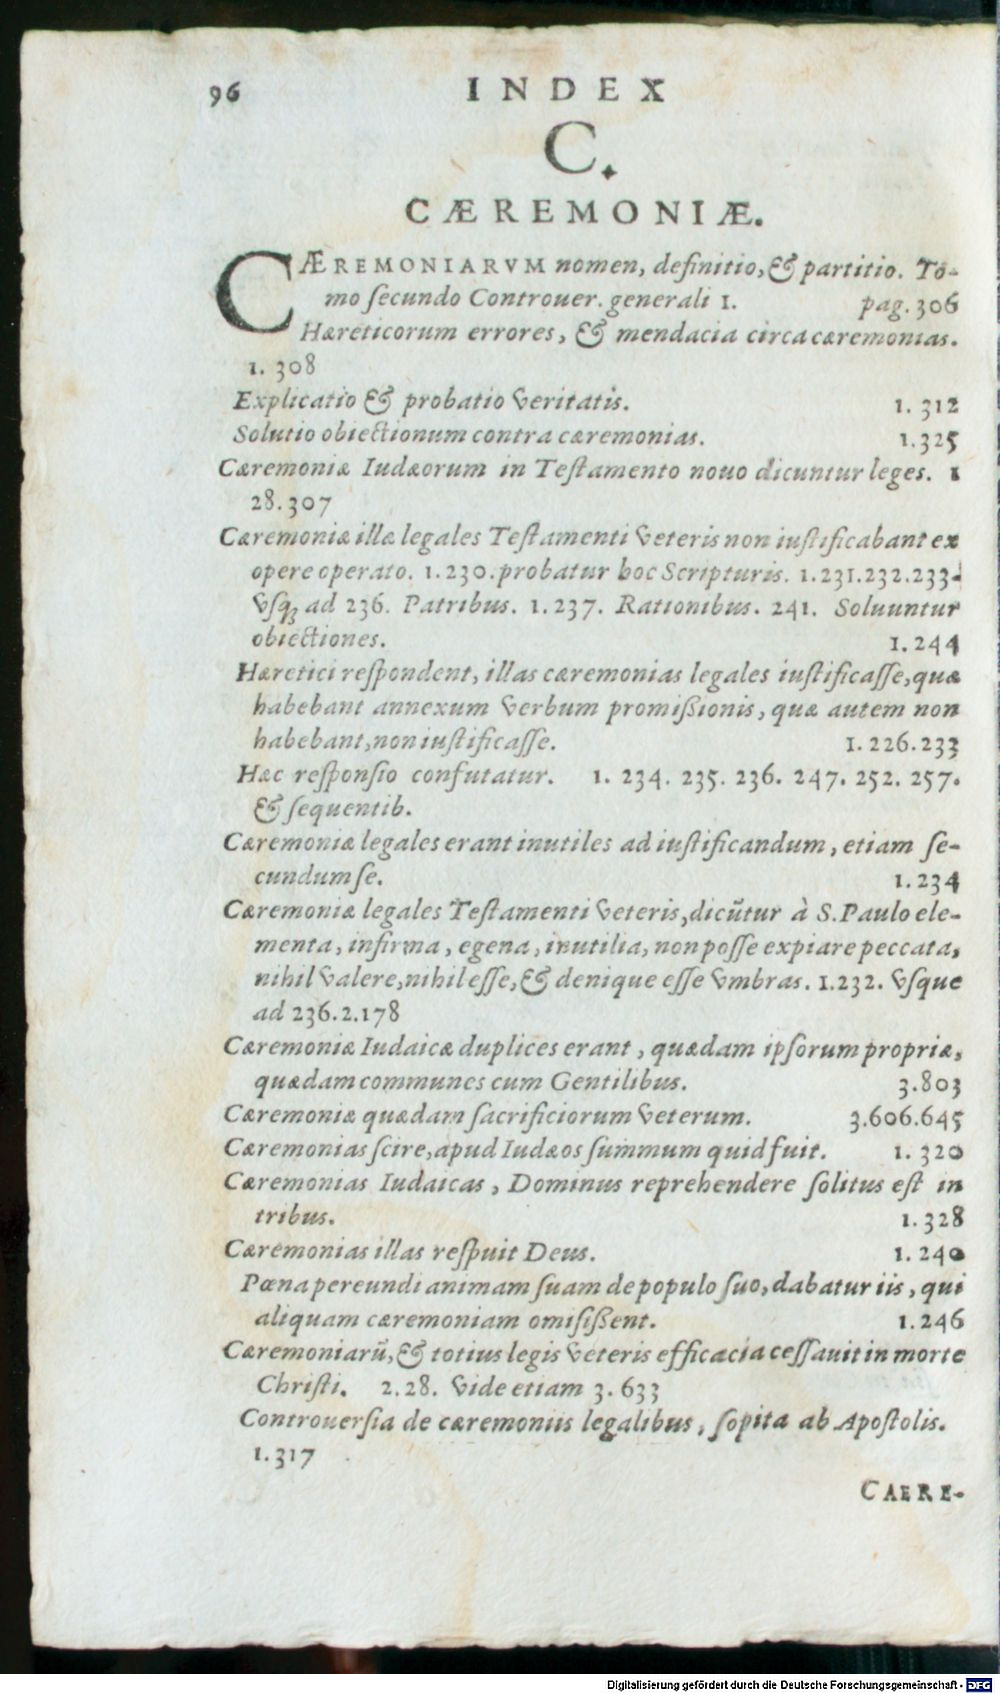 96 INDEX
C.
CÆREMONIÆ.
CÆREMONIARVM nomen, definitio, & partitio. To-
mo ſecundo Controuer. generali 1. pag. 306
Hæreticorum errores, & mendacia circa cæremonias.
1. 308
Explicatio & probatio veritatis. 1. 312
Solutio obiectionum contra cæremonias. 1.325
Cæremoniæ Iudæorum in Teſtamento nouo dicuntur leges. 1
28.307
Cæremoniæ illæ legales Teſtamenti veteris non iuſtificabant ex
opere operato. 1.230. probatur hoc Scripturis. 1.231.232.233.
vſq; ad 236. Patribus. 1.237. Rationibus. 241. Soluuntur
obiectiones. 1.244
Hæretici reſpondent, illas cæremonias legales iuſtificaſſe, quæ
habebant annexum verbum promiſsionis, quæ autem non
habebant, non iuſtificaſſe. 1.226.233
Hæc reſponſio confutatur. 1. 234. 235. 236. 247. 252. 257.
& ſequentib.
Cæremoniæ legales erant inutiles ad iuſtificandum, etiam ſe-
cundum ſe. 1.234
Cæremoniæ legales Teſtamenti veteris, dicūtur à S. Paulo ele-
menta, infirma, egena, inutilia, non poſſe expiare peccata,
nihil valere, nihil eſſe, & denique eſſe vmbras. 1.232. vſque
ad 236.2.178
Cæremoniæ Iudaicæ duplices erant, quædam ipſorum propriæ,
quædam communes cum Gentilibus. 3.803
Cæremoniæ quædam ſacrificiorum veterum. 3.606.645
Cæremonias ſcire, apud Iudæos ſummum quid fuit. 1. 320
Cæremonias Iudaicas, Dominus reprehendere ſolitus eſt in
tribus. 1.328
Cæremonias illas reſpuit Deus. 1.240
Pœna pereundi animam ſuam de populo ſuo, dabatur iis, qui
aliquam cæremoniam omiſiſſent. 1.246
Cæremoniarū, & totius legis veteris efficacia ceſſauit in morte
Chriſti. 2.28. vide etiam 3.633
Controuerſia de cæremoniis legalibus, ſopita ab Apoſtolis.
1.317
CAERE-
Digitalisierung gefördert durch die Deutsche Forschungsgemeinschaft - DFG